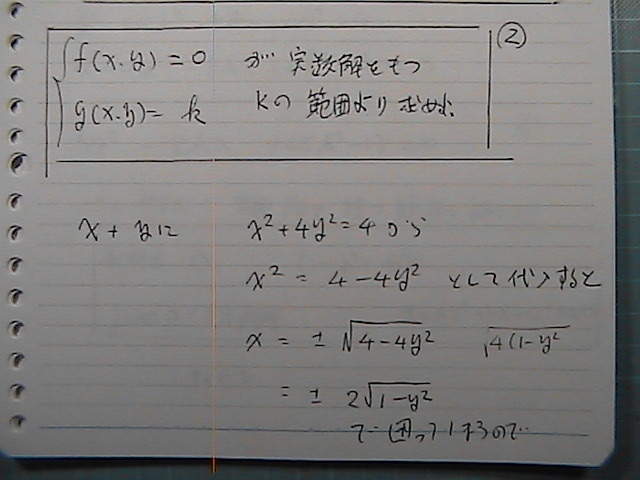 ②
f(x.y) = 0 が 実数解をもつ
g(x.y) = k kの 範囲より 求めよ.
x + yに x² + 4y² = 4 から
x² = 4 - 4y² として代入すると
x = ± √4-4y² √4(1-y²
= ± 2√1-y²
で 困ってしまうので